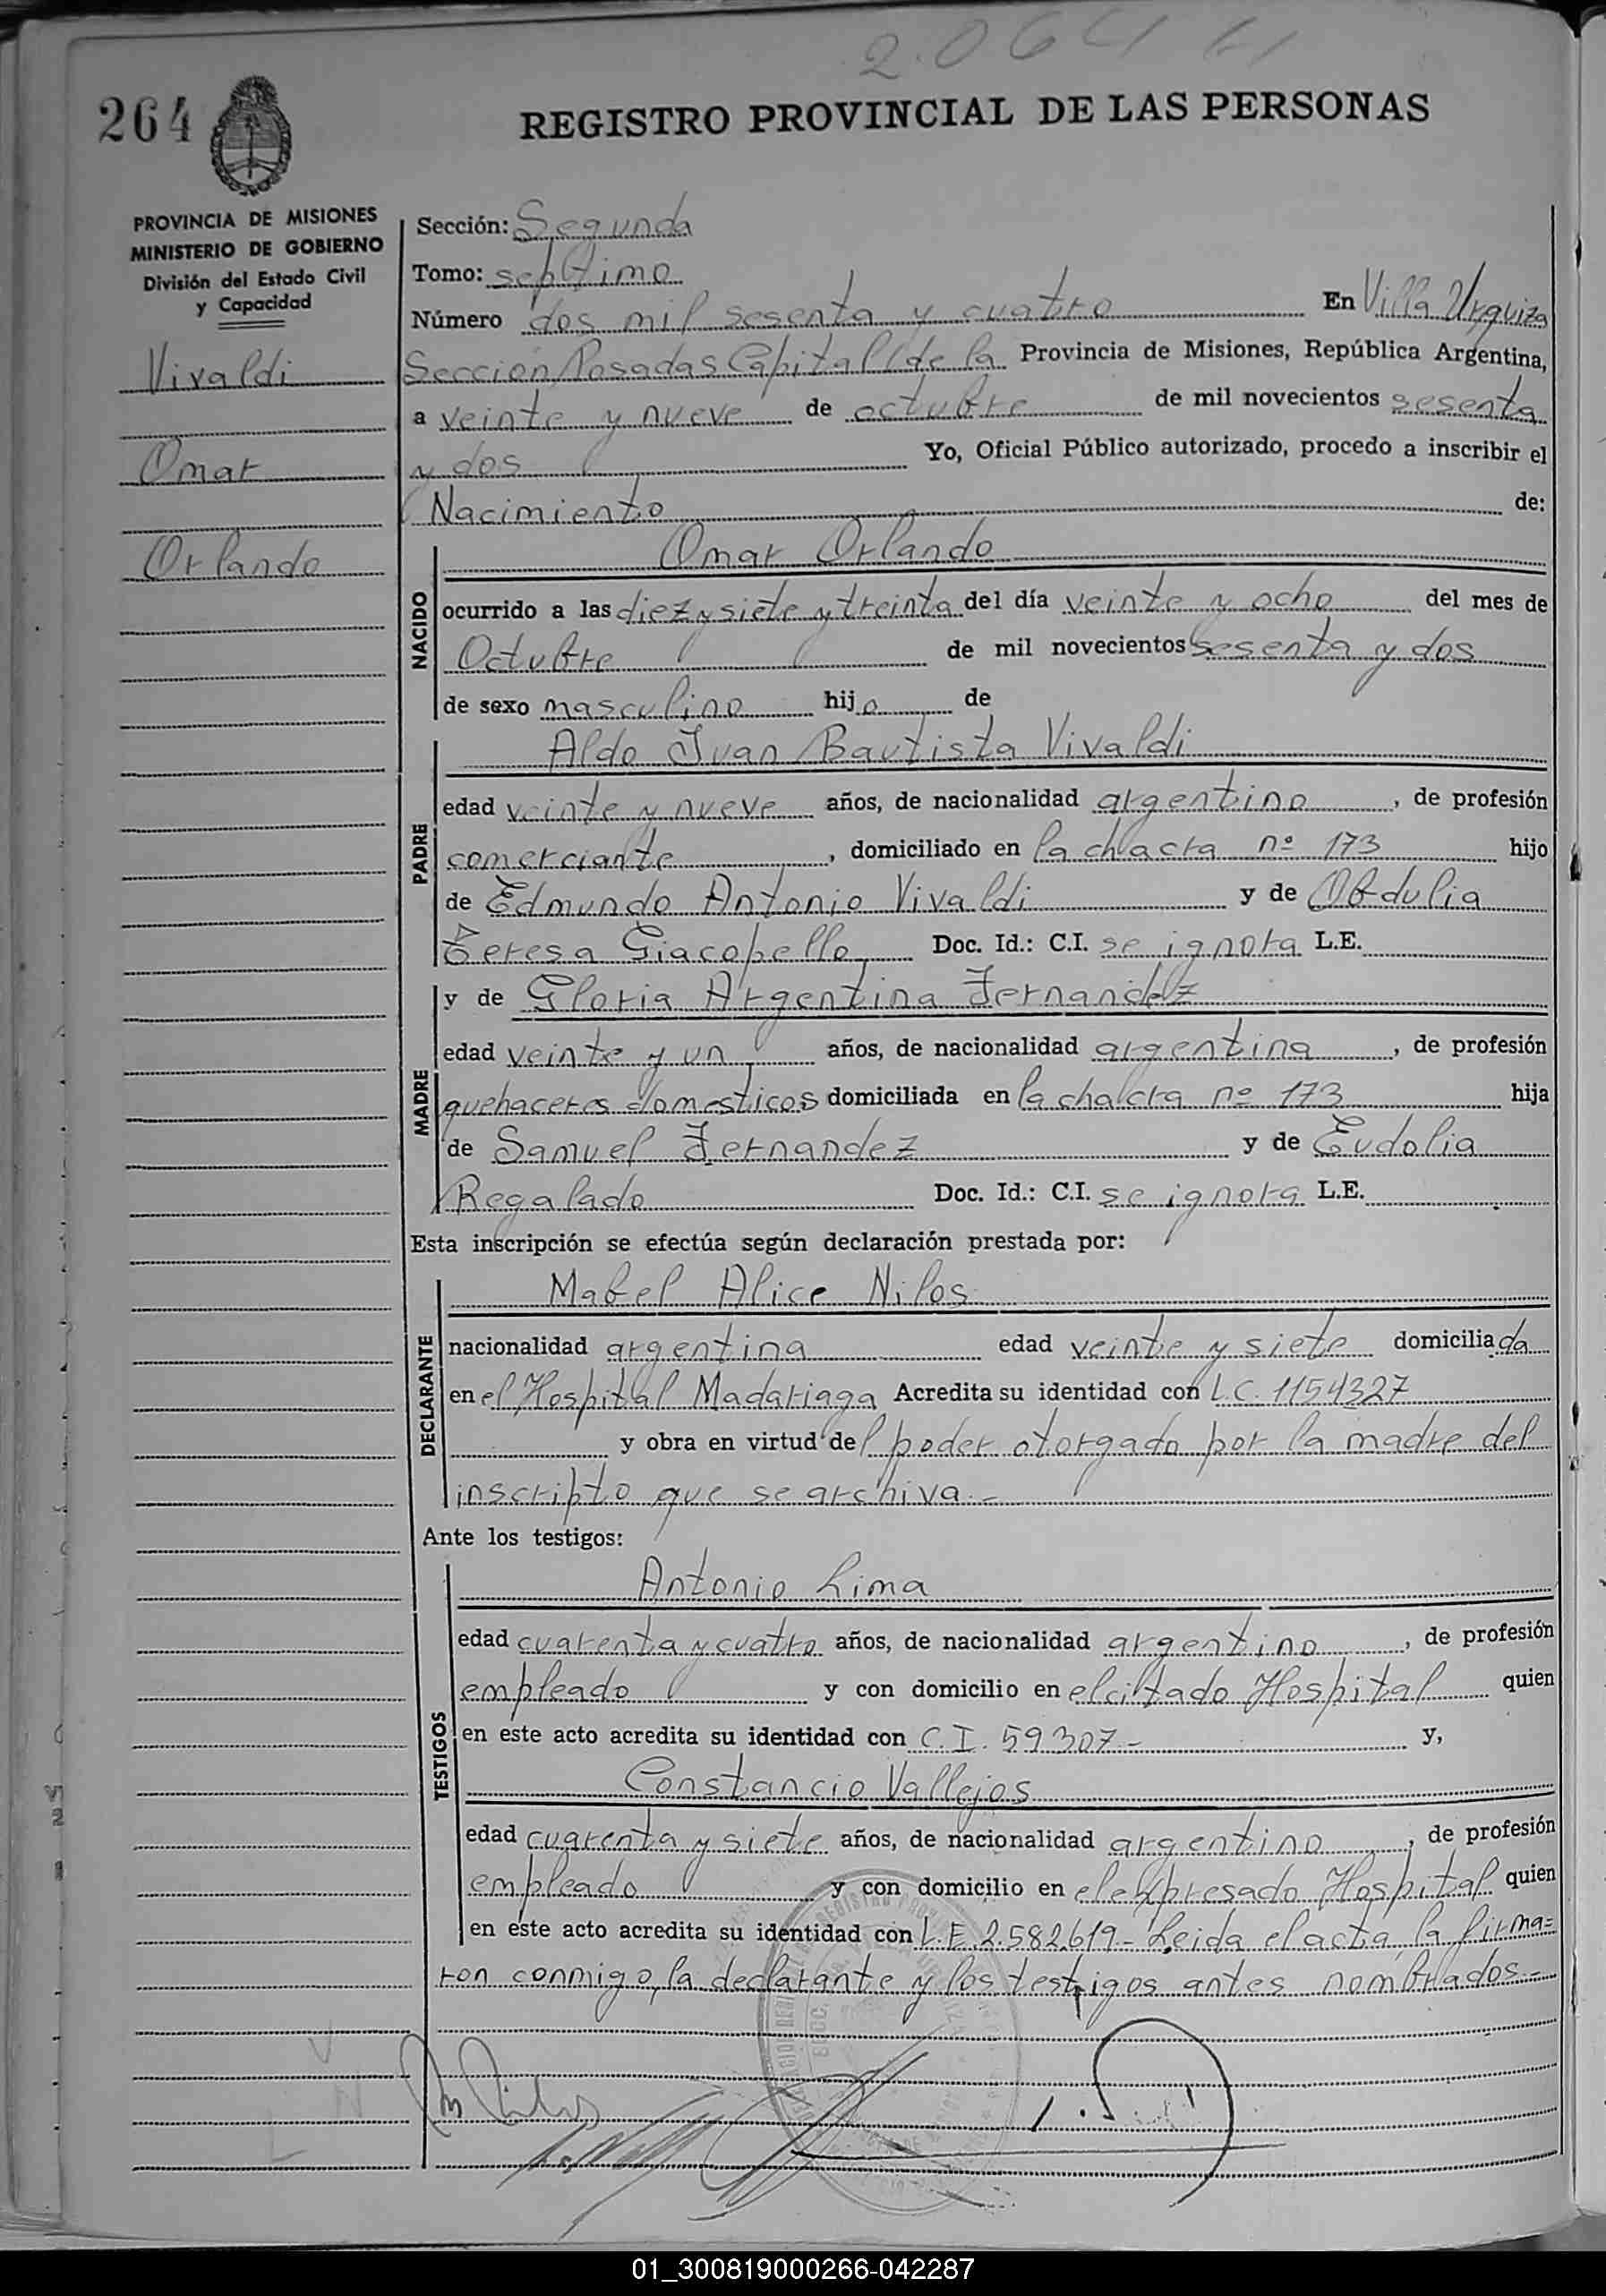 2.064
264
REGISTRO PROVINCIAL DE LAS PERSONAS
PROVINCIA DE MISIONES
MINISTERIO DE GOBIERNO
División del Estado Civil
y Capacidad
Vivaldi
Omar
Orlando
Sección: Segunda
Tomo: septimo
Número dos mil sesenta y cuatro En Villa Urquiza
Sección Posadas Capital de la Provincia de Misiones, República Argentina,
a veinte y nueve de octubre de mil novecientos sesenta
y dos Yo, Oficial Público autorizado, procedo a inscribir el
Nacimiento de:
NACIDO
Omar Orlando
ocurrido a las diez y siete y treinta del día veinte y ocho del mes de
Octubre de mil novecientos sesenta y dos
de sexo masculino hijo de
PADRE
Aldo Juan Bautista Vivaldi
edad veinte y nueve años, de nacionalidad argentino, de profesión
comerciante, domiciliado en la chacra nº 173 hijo
de Edmundo Antonio Vivaldi y de Obdulia
Teresa Giacopello Doc. Id.: C.I. se ignora L.E.
MADRE
y de Gloria Argentina Fernandez
edad veinte y un años, de nacionalidad argentina, de profesión
quehaceres domesticos domiciliada en la chacra nº 173 hija
de Samuel Fernandez y de Eudolia
Regalado Doc. Id.: C.I. se ignora L.E.
Esta inscripción se efectúa según declaración prestada por:
DECLARANTE
Mabel Alice Nilos
nacionalidad argentina edad veinte y siete domiciliada
en el Hospital Madariaga Acredita su identidad con L.C. 1154327
y obra en virtud del poder otorgado por la madre del
inscripto que se archiva.-
Ante los testigos:
TESTIGOS
Antonio Lima
edad cuarenta y cuatro años, de nacionalidad argentino, de profesión
empleado y con domicilio en el citado Hospital quien
en este acto acredita su identidad con C.I. 59307- y,
Constancio Vallejos
edad cuarenta y siete años, de nacionalidad argentino, de profesión
empleado y con domicilio en el expresado Hospital quien
en este acto acredita su identidad con L.E. 2.582.619.- Leida el acta, la firma=
ron conmigo, la declarante y los testigos antes nombrados.-
01_300819000266-042287